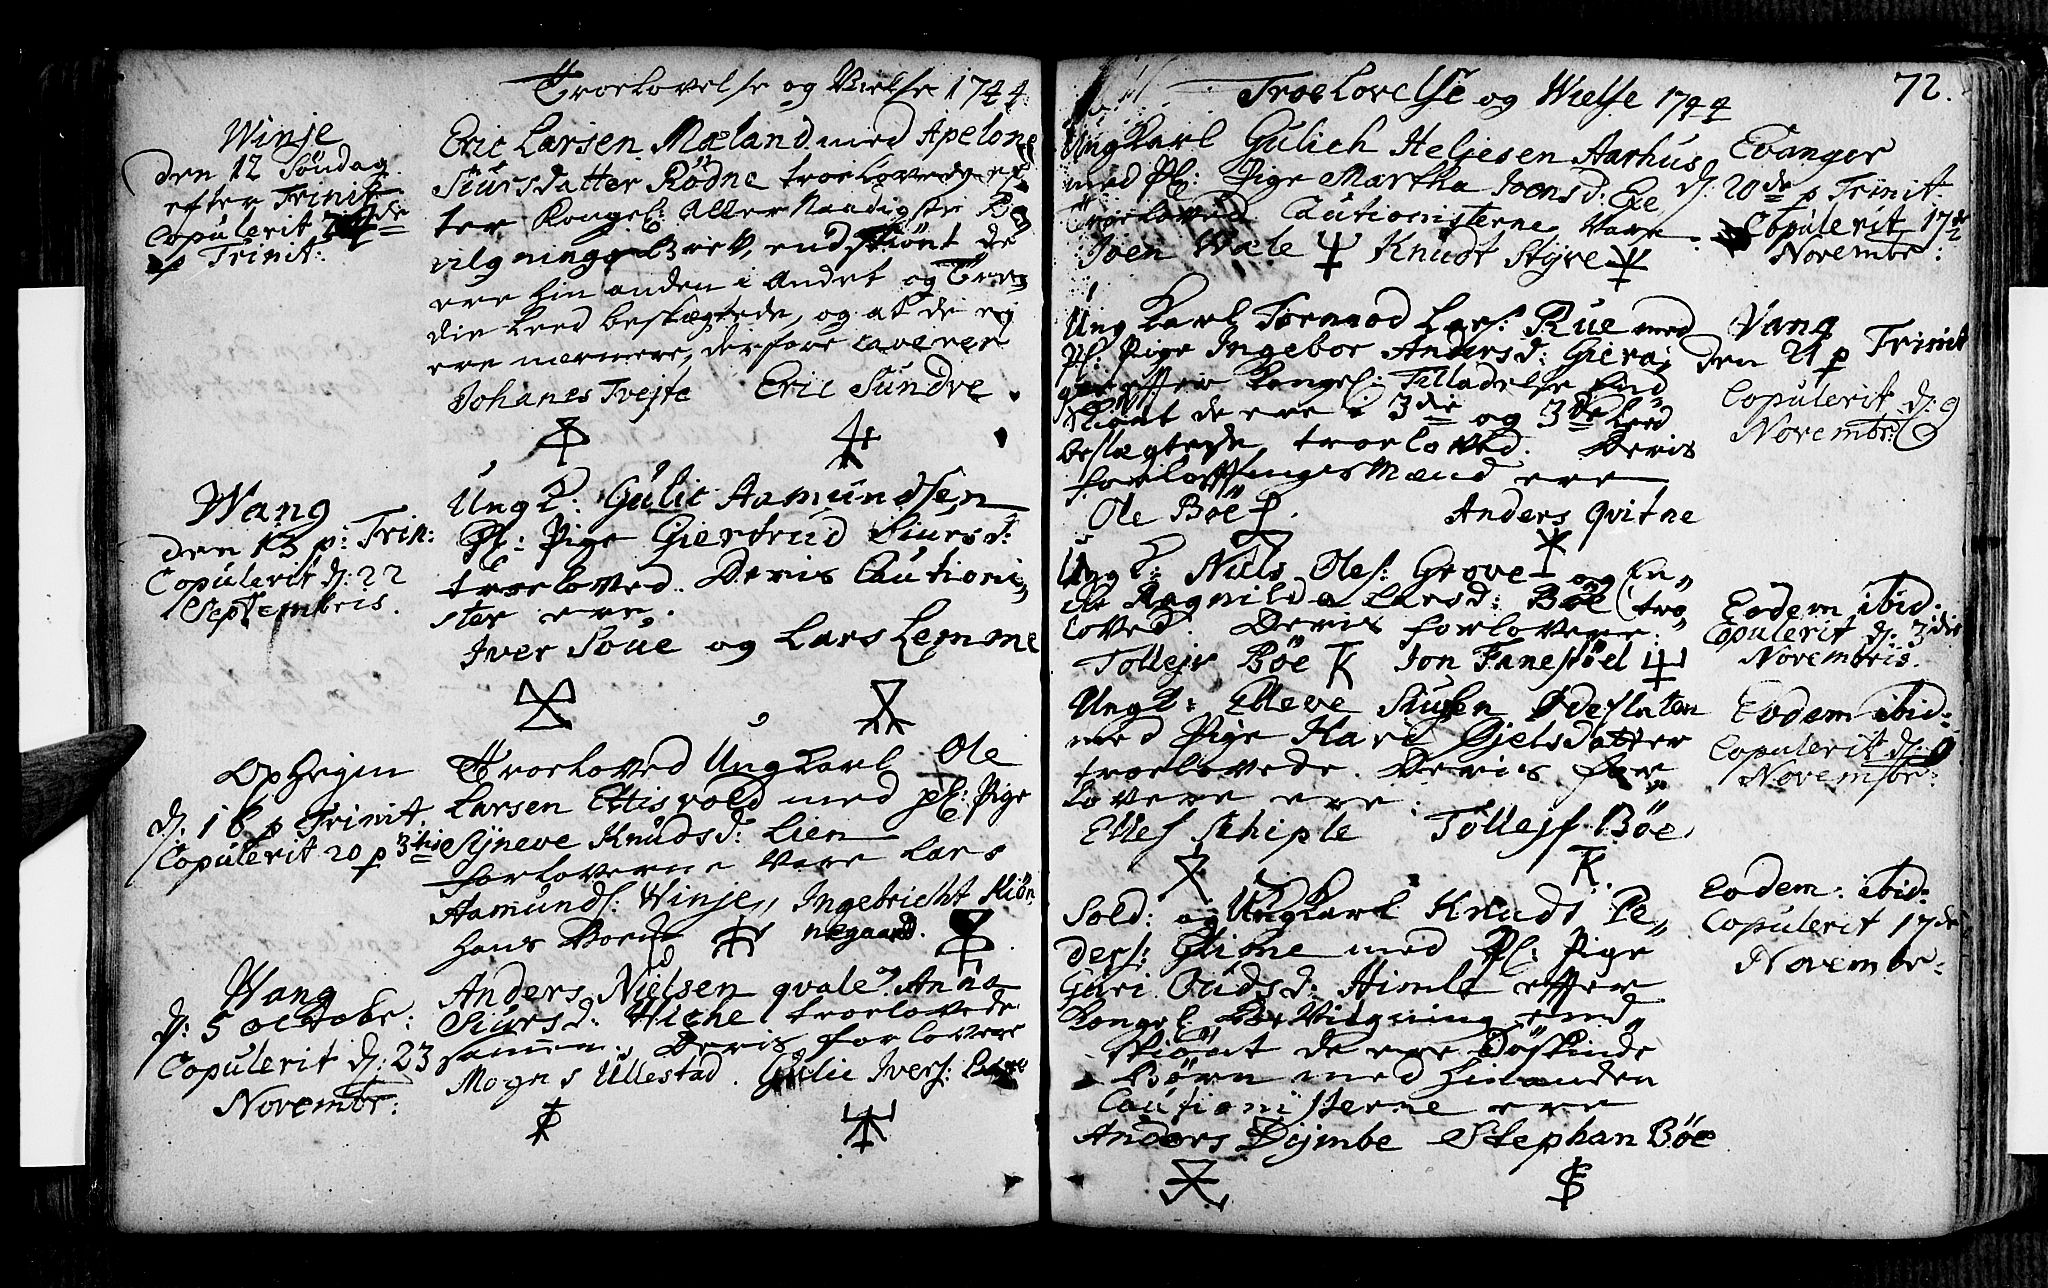 Troelovelse og Vielse 1744
Winje
den 12 Söndag
efter Trinit
Copulerit
p Trinit:
Eric Larsen Mæland med Apelone
Siursdatter Rödne troelovede ef
ter Kongel: Aller Naadigste Be
vilgnings Brev, endskiönt de
ere hin anden i Andet og Tre
die Leed beslægtede, og at de ej
ere nærmere, derfore caverer
Johanes Tvejte Eric Sundve
Wang
den 13 p: Trin:
Copulerit d: 22
Septembris.
Ungk: Gulic Aamundsen
Pl: Pige Giertrud Siursd:
troeloved. Deris Cautioni
ster ere.
Iver Soue og Lars Lemme
Opheym
d: 16 p Trinit.
Copulerit 20 p
Troeloved Ungkarl Ole
Larsen Ettisvold med pl: Pige
Syneve Knudsd: Lien
Forloverne vare Lars
Aamunds: Winje, Ingebricht Kiön
hans Boende negaard.
Wang
d: 5 octobr:
Copulerit d: 23
Novembr:
Anders Nielsen qvale Anna
Siursd: Wiche troelovede
samen. Deris forlovere
Mogns Ullestad. Gulic Ivers:
72.
Troelovelse og Wielse 1744
Ungkarl Gulich Heljesen Aarhus
med Pl: Pige Martha Joensd:
troeloved Cautionisterne vare
Joen Wæle Knudt Styve
Evanger
d: 20de p Trinit
Copulerit 17
Novembr:
Ungkarl Tormod Lars: Rue med
Pl: Pige Ingebor Andersd: Giera
efter Kongel: Tilladelse End
skiönt de ere i 3die og 3die Leed
beslægtede, troeloved. Deris
forlofningsmænd ere
Ole Böe Anders qvitne
Vang
den 21 p Trinit
Copulerit d: 9
Novembr:
Ungk: Niels Oles: Grove og En
ke Ragnilda Larsd: Böe tro
loved. Deris forlovere:
Tollejv Böe Jon Fanestöel
Eodem ibid.
Copulerit d. 3die
Novembris.
Ungk: Elleve Siursen Ødeslaten
med Pige Kari Gjelsdatter
troelovede. Deris for
lovere ere:
Ellef Schiple Tollejf Böe
Eodem ibid.
Copulerit d:
Novembr:
Sold: og Ungkarl Knudt Pe
ders: Glime med Pl: Pige
Guri Oudsd: Himle efter
Kongel: Bevilgning end
skiönt de ere Söskinde
Börn med hinanden
Cautionisterne ere
Anders Dymbe Stephan Böe
Eodem: ibid:
Copulerit 17de
Novembr: